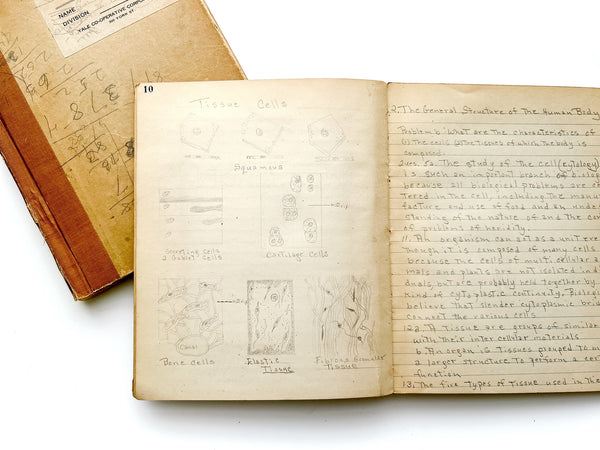 NAME
DIVISION
YALE CO-OPERATIVE CORPOR
10
Tissue Cells
Squamous
Secreting Cells
Goblet Cells
Cartilage Cells
Canal
Bone cells
Elastic
Tissue
Fibrous Granular
Tissue
2. The General Structure of the Human Body
Problem: What are the characteristics of
(1) the cells, (2) the tissues of which the body is
composed.
The study of the cell (cytology)
is such an important branch of biolog
because all biological problems are cen
tered in the cell, including the manu
facture and use of food and an under
standing of the nature of and the con
of problems of heridity.
11. An organism can act as a unit eve
though it is composed of many cells
because the cells of multicellular a
mals and plants are not isolated indi
duals, but are probably held together by
kind of cytoplastic continity, Biologi
believe that slender cytoplasmic brid
connect the various cells
12a. A tissue are groups of similar
with their inter cellular materials
b. An organ is tissues grouped to m
a larger structure to perform a cer
function
13. The five types of tissue used in the